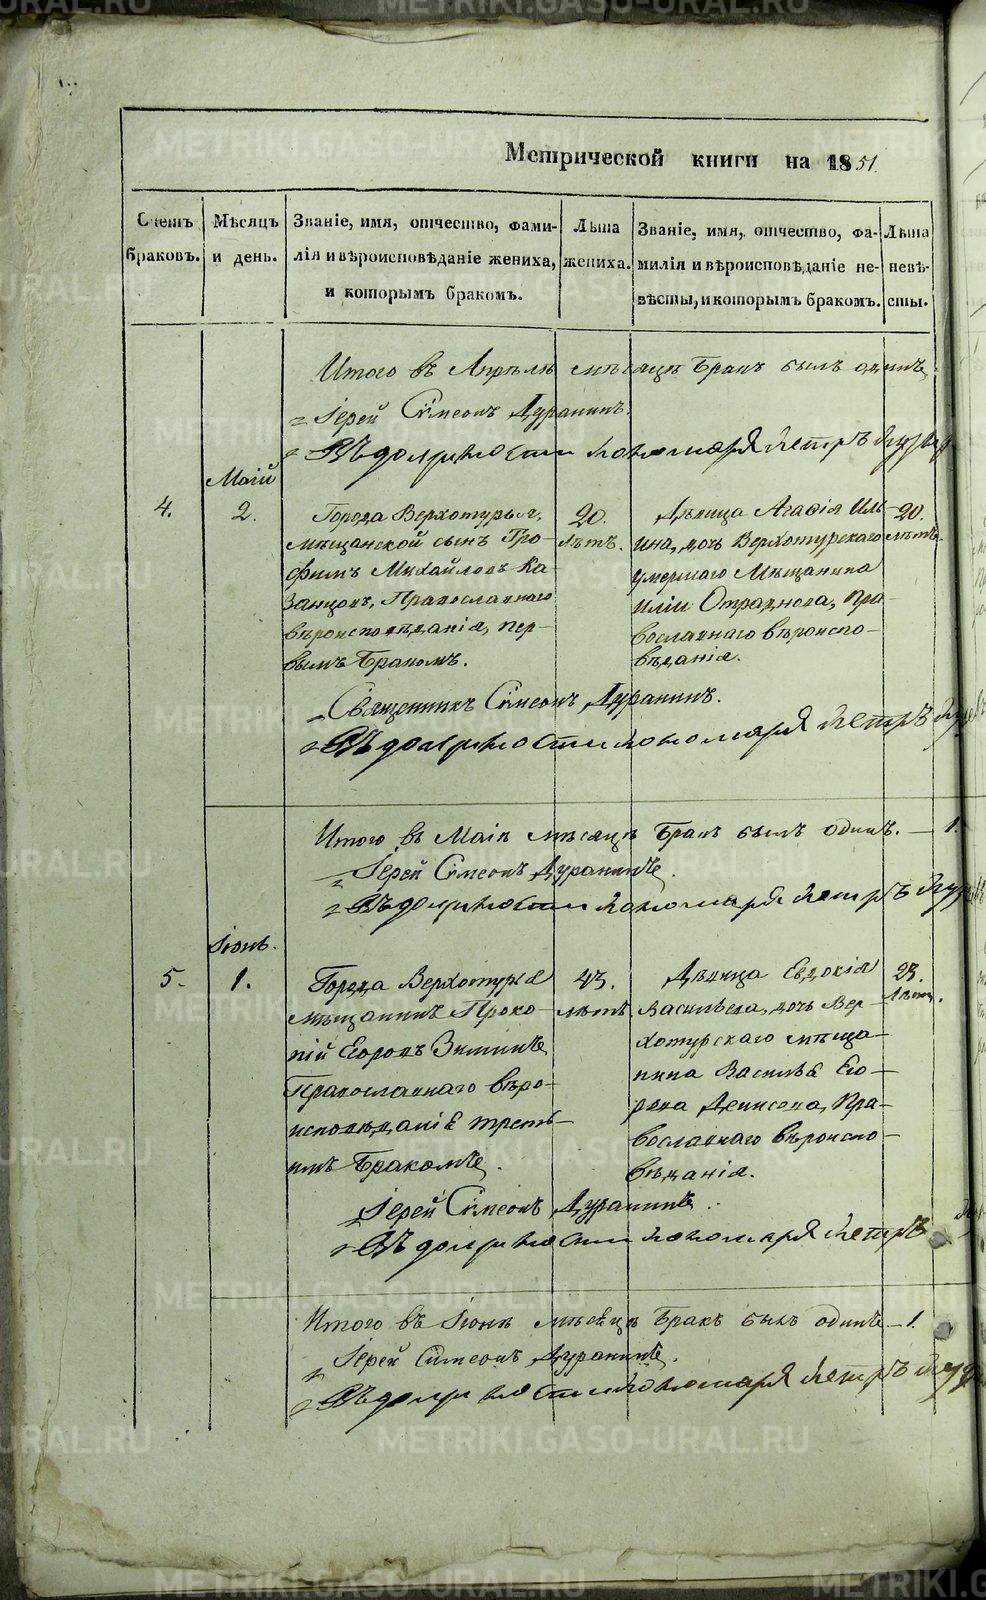 Метрической книги на 1851.
Счетъ браковъ.
Мѣсяцъ и день.
Званіе, имя, отчество, фами-
лія и вѣроисповѣданіе жениха,
и которымъ бракомъ.
Лѣта
жениха.
Званіе, имя, отчество, фа-
милія и вѣроисповѣданіе не-
вѣсты, и которымъ бракомъ.
Лѣта
невѣ-
сты.
Итого въ Апрѣлѣ мѣсяцѣ бракъ былъ одинъ
Іерей Сѵмеонъ Дуранинъ.
Въ должности пономаря Петръ
4.
Маій
2.
Города Верхотурья,
мѣщанской сынъ Тро-
фимъ Михайловъ Ка-
занцовъ, Православнаго
вѣроисповѣданія, пер-
вымъ бракомъ.
20.
лѣтъ.
Дѣвица Агафія Иль-
ина, дочь Верхотурскаго
умершаго Мѣщанина
Иліи Отраднова, Пра-
вославнаго вѣроиспо-
вѣданія.
20.
лѣтъ.
Священникъ Сѵмеонъ Дуранинъ.
Въ должности пономаря Петръ
Итого въ Маіи мѣсяцѣ бракъ былъ одинъ. — 1.
Іерей Сѵмеонъ Дуранинъ.
Въ должности пономаря Петръ
5.
Іюнь.
1.
Города Верхотурья
мѣщанинъ Проко-
пій Егоровъ Зиминъ,
Православнаго вѣро-
исповѣданія треть-
имъ бракомъ.
43.
лѣтъ.
Дѣвица Евдокія
Васильева, дочь Вер-
хотурскаго мѣща-
нина Василья Его-
рова Денисова, Пра-
вославнаго вѣроиспо-
вѣданія.
23.
лѣтъ.
Іерей Сѵмеонъ Дуранинъ.
Въ должности пономаря Петръ
Итого въ Іюнѣ мѣсяцѣ бракъ былъ одинъ — 1.
Іерей Сѵмеонъ Дуранинъ.
Въ должности пономаря Петръ
METRIKI.GASO-URAL.RU